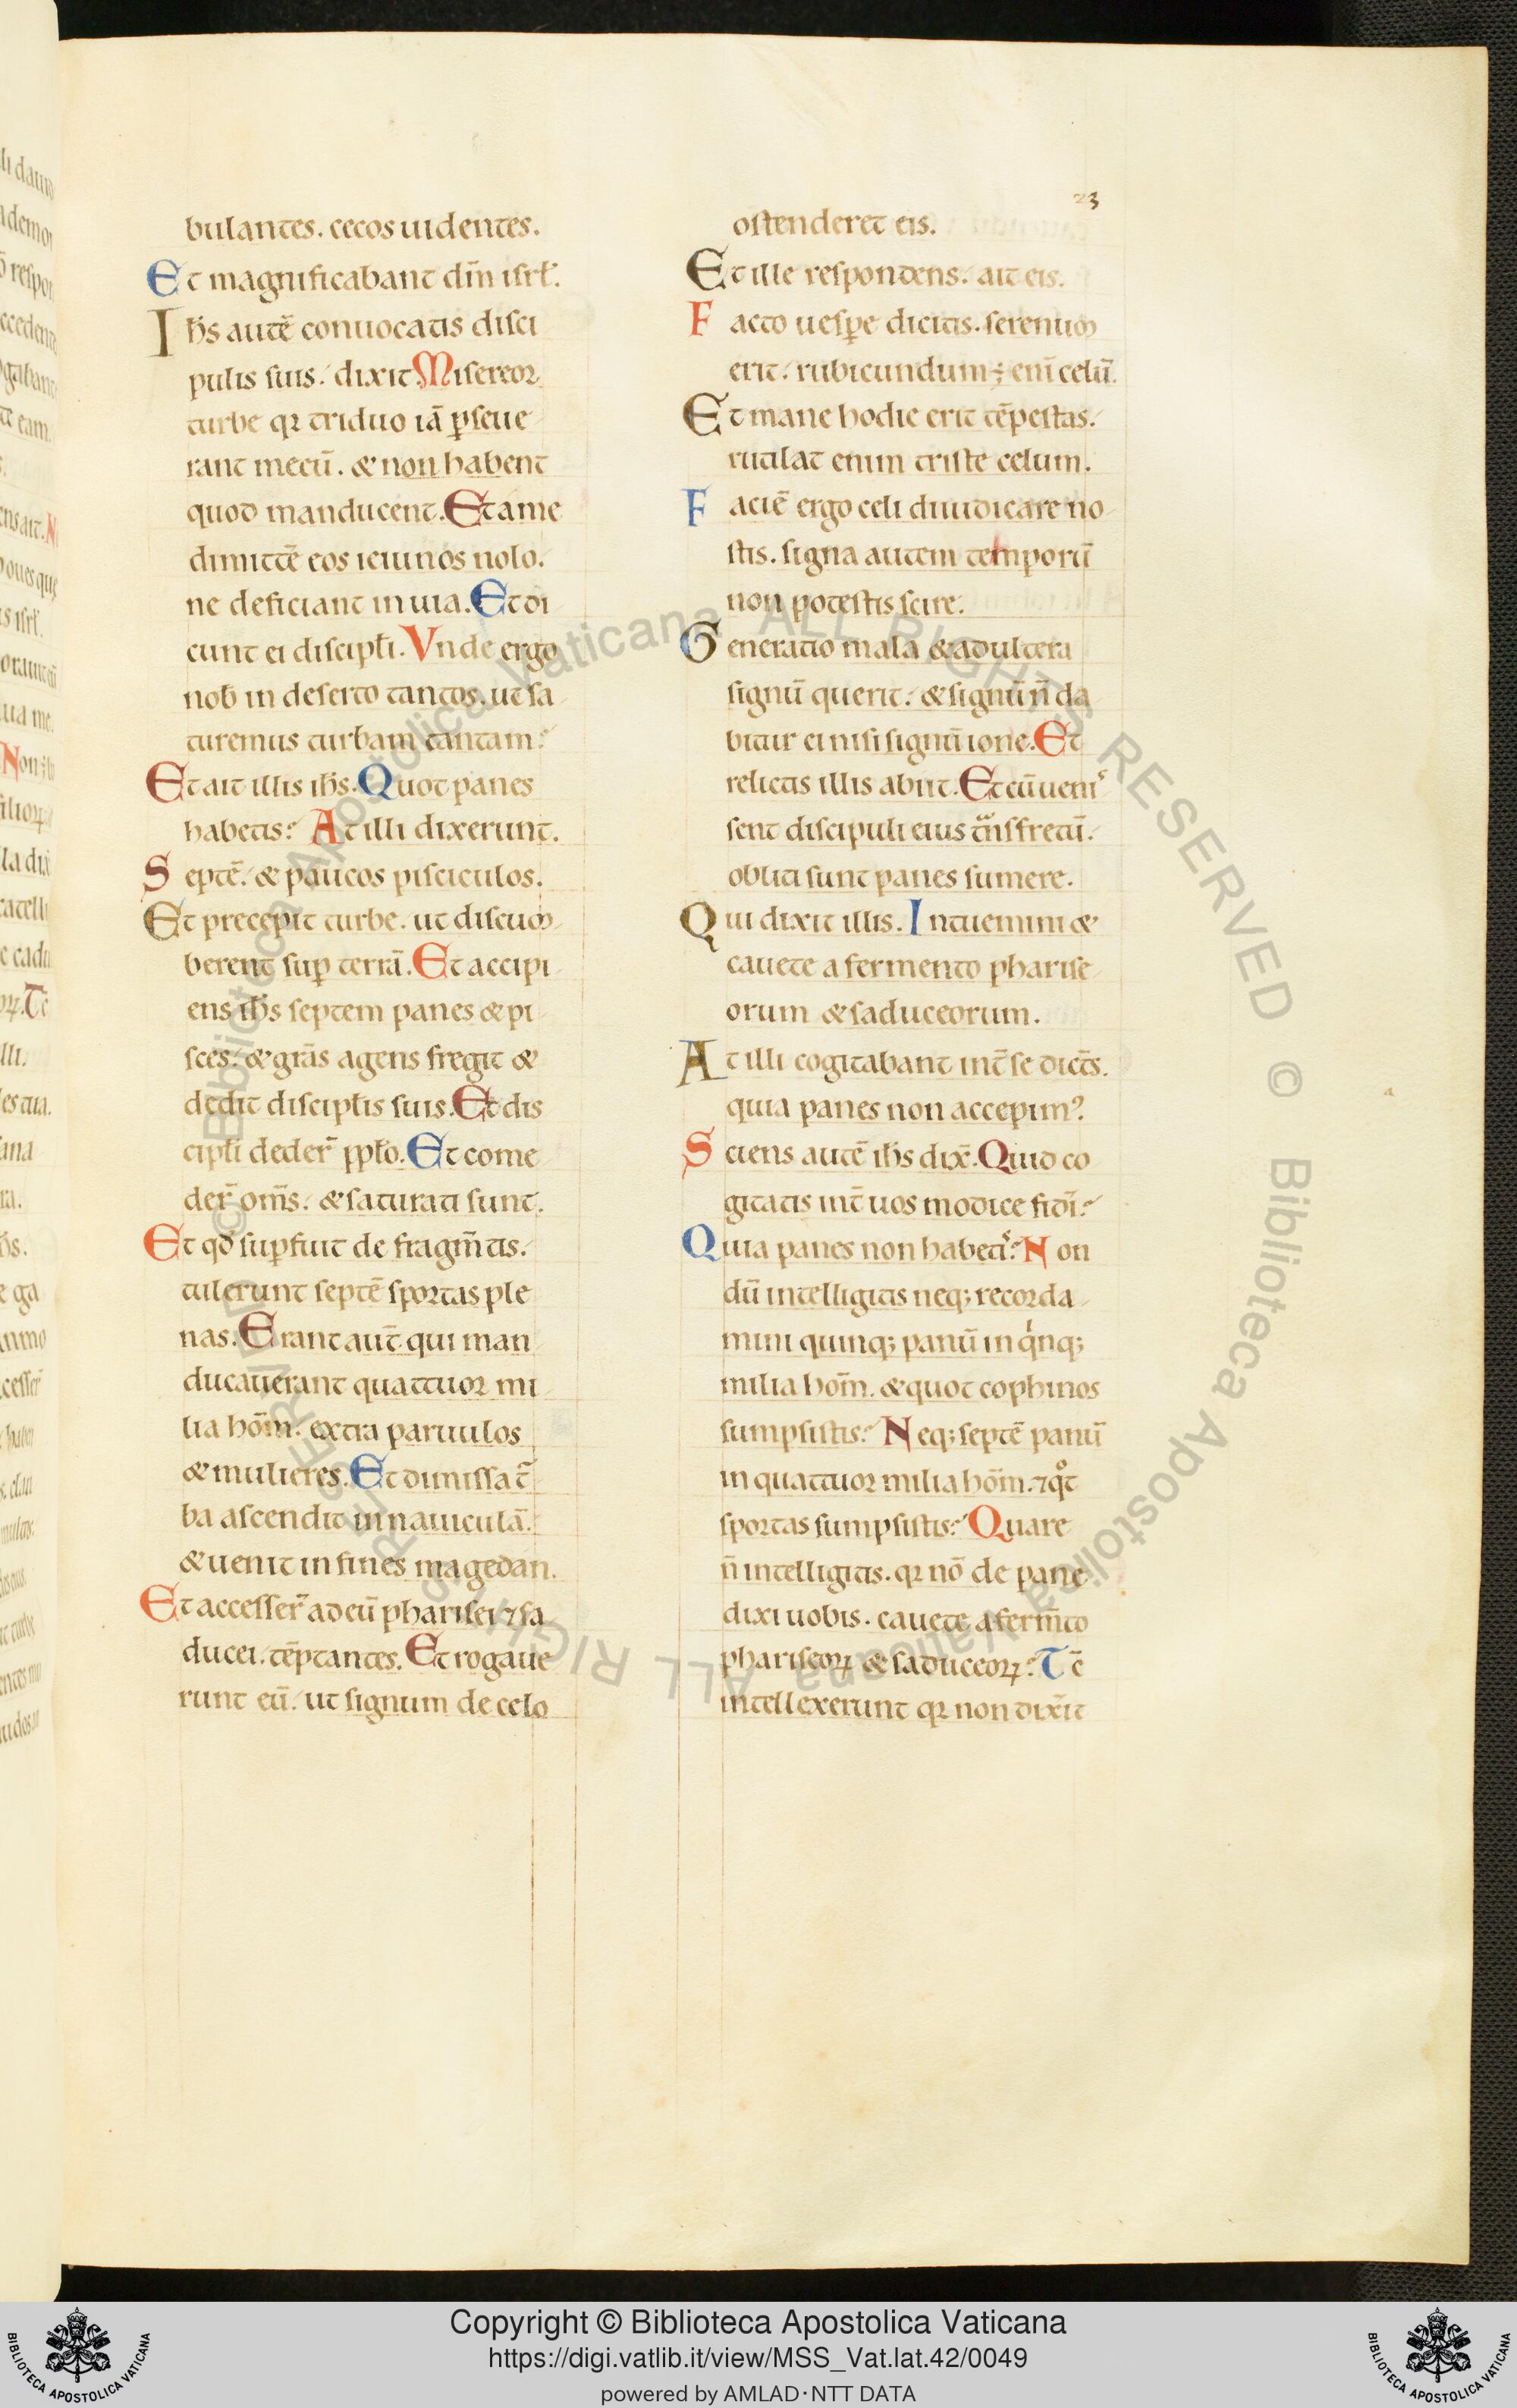 23
bulantes. cecos uidentes.
Et magnificabant dm̄ isrł.
Ihs̄ autē conuocatis disci
pulis suis. dixit. Misereor
turbe qꝛ triduo iā ꝑseue
rant mecū. & non habent
quod manducent. Et ame
dimittē eos ieiunos nolo.
ne deficiant in uia. Et di
cunt ei discipłi. Vnde ergo
nob in deserto tantos. ut sa
turemus turbam tantam?
Et ait illis ihs̄. Quot panes
habetis? At illi dixerunt.
Septē. & paucos pisciculos.
Et precepit turbe. ut discum
berent suꝑ terrā. Et accipi
ens ihs̄ septem panes & pi
sces. & grās agens fregit &
dedit discipłis suis. Et dis
cipłi deder̄ ppło. Et come
der̄ om̄s. & saturati sunt.
Et qđ suꝑfuit de fragm̄tis.
tulerunt septē sportas ple
nas. Erant aut̄ qui man
ducauerant quattuor mi
lia hom̄. extra paruulos
& mulieres. Et dimissa t̄
ba ascendit in nauiculā.
& uenit in fines magedan.
Et accesser̄ ad eū pharisei ⁊ sa
ducei. tēptantes. Et rogaue
runt eū. ut signum de celo
ostenderet eis.
Et ille respondens. ait eis.
Facto uesꝑe dicitis. serenum
erit. rubicundum ÷ enī celū.
Et mane hodie erit tēpestas.
rutilat enim triste celum.
Faciē ergo celi diiudicare no
stis. signa autem temporū
non potestis scire.
Generatio mala & adultera
signū querit. & signū n̄ da
bitur ei nisi signū ione. Et
relictis illis abiit. Et cū ueni
sent discipuli eius tͣnsfretū.
obliti sunt panes sumere.
Qui dixit illis. Intuemini &
cauete a fermento pharise
orum & saduceorum.
At illi cogitabant int̄ se dict̄s.
quia panes non accepimꝰ.
Sciens autē ihs̄ dix̄. Quid co
gitatis int̄ uos modice fidī?
Quia panes non habetis? Non
dū intelligitis neqꝫ recorda
mini quinqꝫ panū in qͥnqꝫ
milia hom̄. & quot cophinos
sumpsistis? Neqꝫ septē panū
in quattuor milia hom̄. ⁊ qͦt
sportas sumpsistis? Quare
n̄ intelligitis. qꝛ nō de pane
dixi uobis. cauete a ferm̄to
phariseoꝝ & saduceoꝝ? Tc̄
intellexerunt qꝛ non dixīt
Copyright © Biblioteca Apostolica Vaticana
https://digi.vatlib.it/view/MSS_Vat.lat.42/0049
powered by AMLAD·NTT DATA